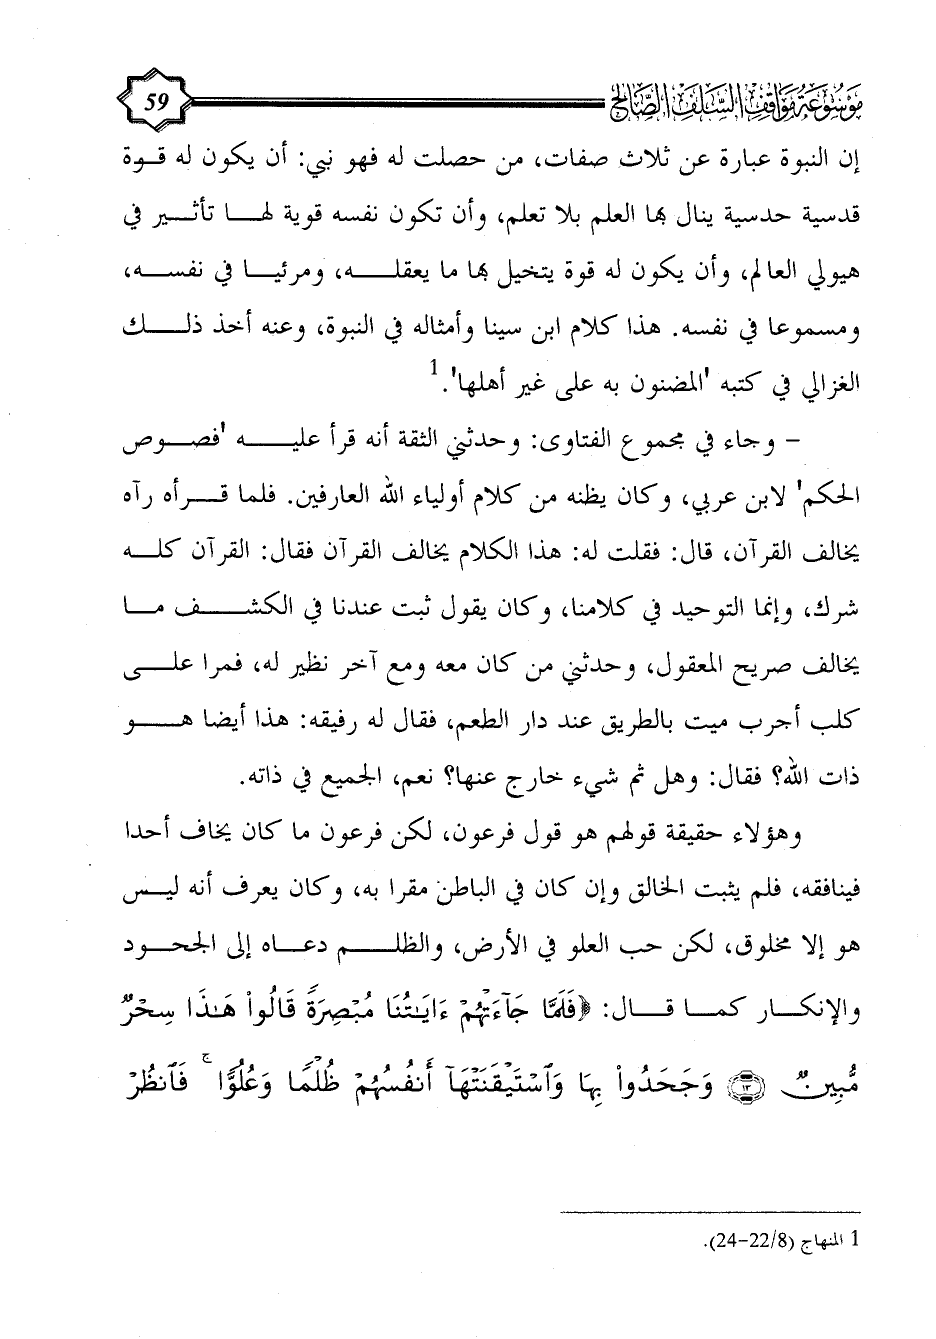 موسوعة مواقف السلف الصالح
59
إن النبوة عبارة عن ثلاث صفات، من حصلت له فهو نبي: أن يكون له قوة
قدسية حدسية ينال بها العلم بلا تعلم، وأن تكون نفسه قوية لها تأثير في
هيولي العالم، وأن يكون له قوة يتخيل بها ما يعقله، ومرئيا في نفسه،
ومسموعا في نفسه. هذا كلام ابن سينا وأمثاله في النبوة، وعنه أخذ ذلك
الغزالي في كتبه 'المضنون به على غير أهلها'.1
- وجاء في مجموع الفتاوى: وحدثني الثقة أنه قرأ عليه 'فصوص
الحكم' لابن عربي، وكان يظنه من كلام أولياء الله العارفين. فلما قرأه رآه
يخالف القرآن، قال: فقلت له: هذا الكلام يخالف القرآن فقال: القرآن كله
شرك، وإنما التوحيد في كلامنا، وكان يقول ثبت عندنا في الكشف ما
يخالف صريح المعقول، وحدثني من كان معه ومع آخر نظير له، فمرا على
كلب أجرب ميت بالطريق عند دار الطعم، فقال له رفيقه: هذا أيضا هو
ذات الله؟ فقال: وهل ثم شيء خارج عنها؟ نعم، الجميع في ذاته.
وهؤلاء حقيقة قولهم هو قول فرعون، لكن فرعون ما كان يخاف أحدا
فينافقه، فلم يثبت الخالق وإن كان في الباطن مقرا به، وكان يعرف أنه ليس
هو إلا مخلوق، لكن حب العلو في الأرض، والظلم دعاه إلى الجحود
والإنكار كما قال: ﴿فَلَمَّا جَآءَتْهُمْ ءَايَٰتُنَا مُبْصِرَةً قَالُوا۟ هَٰذَا سِحْرٌ
مُّبِينٌ ١٣ وَجَحَدُوا۟ بِهَا وَٱسْتَيْقَنَتْهَآ أَنفُسُهُمْ ظُلْمًا وَعُلُوًّا ۚ فَٱنظُرْ
1 المنهاج (22/8-24).